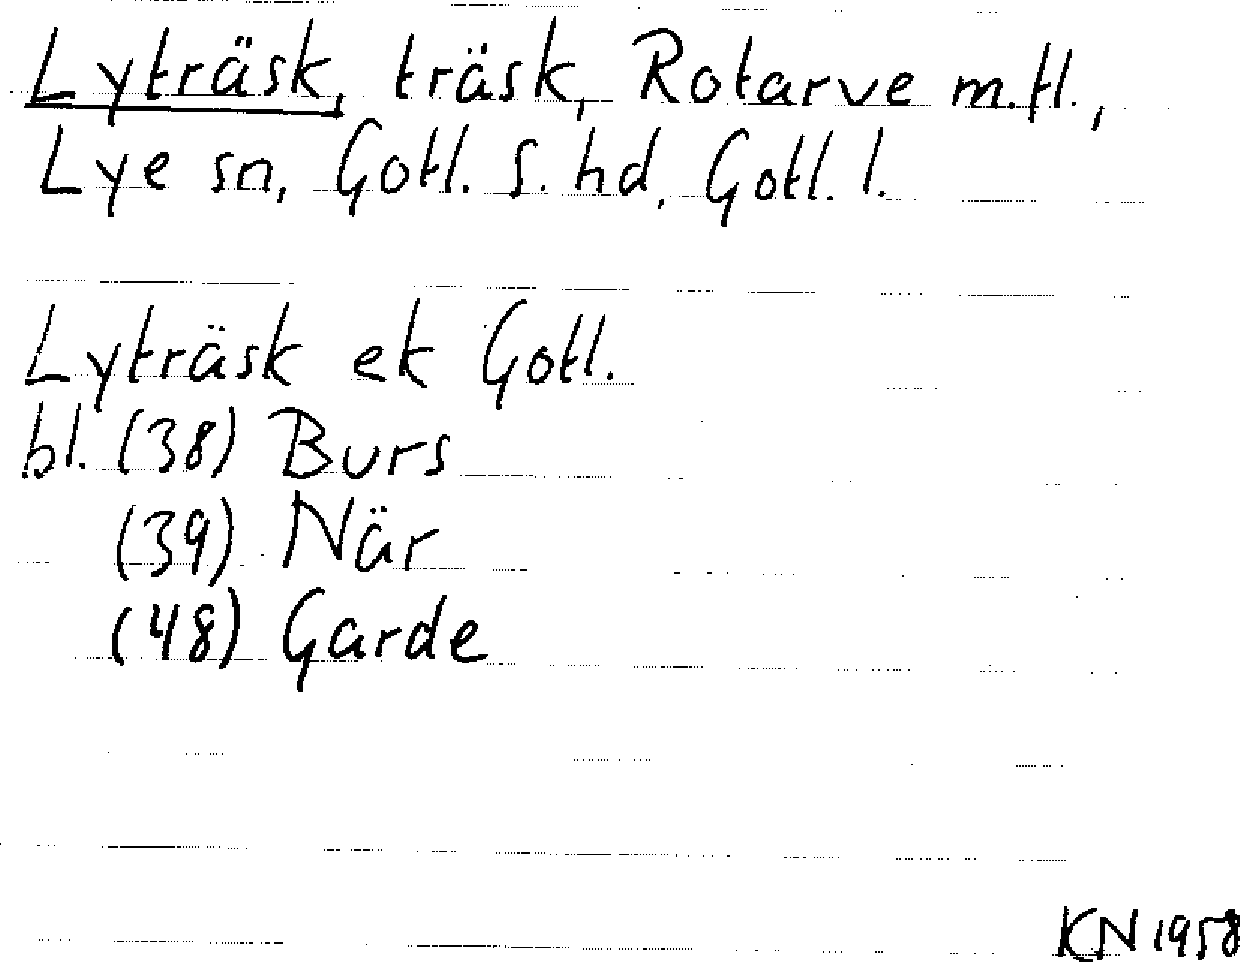 Lyträsk, träsk, Rotarve m.fl.,
Lye sn, Gotl. S. hd, Gotl. l.
Lyträsk ek Gotl.
bl. (38) Burs
(39) När
(48) Garde
KN 1958